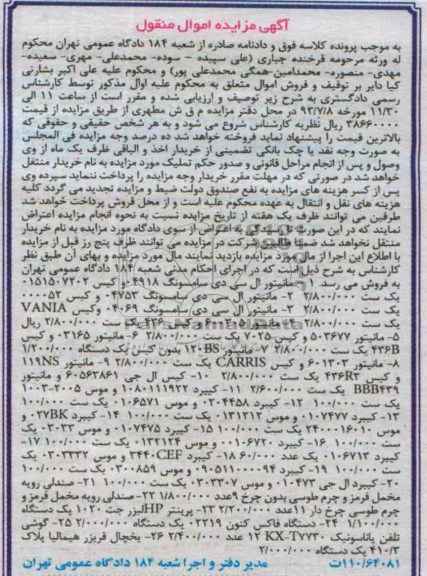 آگهی مزایده اموال منقول
به موجب پرونده کلاسه فوق و دادنامه صادره از شعبه ۱۸۴ دادگاه عمومی تهران محکوم
له ورثه مرحومه فرخنده جباری (علی سپیده - سوده- محمدعلی- مهری- سعیده-
مهدی- منصوره- محمدامین-همگی محمدعلی پور) و محکوم علیه علی اکبر بشارتی
کیا دایر بر توقیف و فروش اموال متعلق به محکوم علیه اوال مذکور توسط کارشناس
رسمی دادگستری به شرح زیر توصیف و ارزیابی شده و مقرر است از ساعت ۱۱ الی
۱۱/۳۰ مورخه ۹۳/۷/۸ در محل دفتر مزایده م ق ش مطهری از طریق مزایده از قیمت
۳۸۶۶۰۰۰۰ ریال نظریه کارشناس شروع می شود و به هر شخص حقیقی و حقوقی که
بالاترین قیمت را پیشنهاد نماید فروخته خواهد شد ده درصد وجه مزایده فی المجلس
به صورت وجه نقد یا چک بانکی تضمینی از خریدار اخذ و الباقی ظرف یک ماه از وی
وصول و پس از انجام مراحل قانونی و صدور حکم تملیک مورد مزایده به نام خریدار منتقل
خواهد شد در صورتی که در مهلت مقرر خریدار وجه مزایده را پرداخت ننماید سپرده وی
پس از کسر هزینه های مزایده به نفع صندوق دولت ضبط و مزایده تجدید می گردد کلیه
هزینه های نقل و انتقال به عهده محکوم علیه است و از محل فروش پرداخت خواهد شد
طرفین می توانند ظرف یک هفته از تاریخ مزایده نسبت به نحوه انجام مزایده اعتراض
نمایند که در این صورت تا رسیدگی به اعتراض از سوی دادگاه مورد مزایده به نام خریدار
منتقل نخواهد شد ضمنا طالبین شرکت در مزایده می توانند ظرف پنج روز قبل از مزایده
با اطلاع این اجرا از مال مورد مزایده بازدید نمایند مال مورد مزایده و بهای آن طبق نظر
کارشناس به شرح ذیل است که در اجرای احکام مدنی شعبه ۱۸۴ دادگاه عمومی تهران
به فروش می رسد. ۱- مانیتور ال سی دی سامسونگ ۰۴۹۱۸ و کیس ۰۱۵۱۵۰۷۳۰۲
یک ست ۲/۸۰۰/۰۰۰ ۲- مانیتور ال سی دی سامسونگ ۰۴۷۵۳ و کیس ۰۰۰۰۵۲
یک ست ۲/۸۰۰/۰۰۰ ۳- مانیتور ال سی دی سامسونگ ۰۴۰۶۹ و کیس VANIA
یک ست ۲/۸۰۰/۰۰۰ ۴- مانیتور یک ست ۲/۸۰۰/۰۰۰ ریال
۵- مانیتور ۵۰۳۶۷۷ و کیس ۷۰۲۵ یک ست ۲/۸۰۰/۰۰۰ ۶- مانیتور ۰۳۱۶۵ و کیس
۴۳۶B یک ست ۲/۸۰۰/۰۰۰ ۷- مانیتور ۱۲۰BS بدون کیس یک دستگاه ۱/۲۰۰/۰۰۰
۸- مانیتور ۶۰۱۳۰۳ و کیس CARRIS یک ست ۲/۸۰۰/۰۰۰ ۹- مانیتور ۱۱۹NS
و کیس ۴۳۶R۳ یک ست ۲/۸۰۰/۰۰۰ ۱۰- کیس ال جی ۶۰۵۶۳۸۶۱ و مانیتور
BBB۴۳۹ یک ست ۲/۶۰۰/۰۰۰ ۱۱- کیبرد ۱۰۸۰۱۱۱۹۲۲ و موس ۱۰۰۳-۲۰۰۵
یک ست ۱۰۰/۰۰۰ ۱۲- کیبرد ۰۳۰۴۴۵۸ و موس ۱۰۶۵۷۱ یک ست ۱۰۰/۰۰۰
۱۳- کیبرد ۰۱۰۷۴۷۷ و موس ۱۳۱۲۱۲ یک ست ۱۰۰/۰۰۰ ۱۴- کیبرد ۰۲۷BK و
موس ۲۴۰۰۰۱۶۰۱۰ یک ست ۱۰۰/۰۰۰ ۱۵- کیبرد ۰۱۰۷۴۷۵ و موس ۰۳۰۳۳ یک
ست ۱۰۰/۰۰۰ ۱۶- کیبرد ۰۰۱۰۶۷۲۰ و موس ۱۳۲۱۲۴ یک ست ۱۰۰/۰۰۰ ۱۷-
کیبرد ۰۱۰۶۷۱۳ یک عدد ۶۰/۰۰۰ ۱۸- کیبرد ۳۴۴۰CEF و موس ۳۰۳۳۳۲ یک
ست ۱۰۰/۰۰۰ ۱۹- کیبرد ۰۹۰۵۱۱۰۰۰۰۹۴ و موس ۳۰۰۸۵۹ یک ست ۱۰۰/۰۰۰
۲۰- کیبرد ال جی ۰۱۰۴۷۳ و موس ۰۳۰۳۳۰۷ یک ست ۱۰۰/۰۰۰ ۲۱- صندلی رویه
مخمل قرمز و چرم طوسی بدون چرخ ۹عدد ۱/۸۰۰/۰۰۰ ۲۲- صندلی رویه مخمل قرمز و
چرم طوسی چرخ دار ۱۱عدد ۲/۲۰۰/۰۰۰ ۲۳- پرینتر HPلیزر جت ۱۰۲۰ یک دستگاه
۱/۱۰۰/۰۰۰ ۲۴- دستگاه فاکس کنون ۰۲۲۱۹ یک دستگاه ۲/۰۰۰/۰۰۰ ۲۵- گوشی
تلفن پاناسونیک KX-T۷۷۳۰ ۱۲ عدد ۲/۴۰۰/۰۰۰ ۲۶- یخچال فریزر هیمالیا پلاک
۴۱۰/۳ یک دستگاه ۲/۰۰۰/۰۰۰
۱۱۰/۶۴۰۸۱ت مدیر دفتر و اجرا شعبه ۱۸۴ دادگاه عمومی تهران